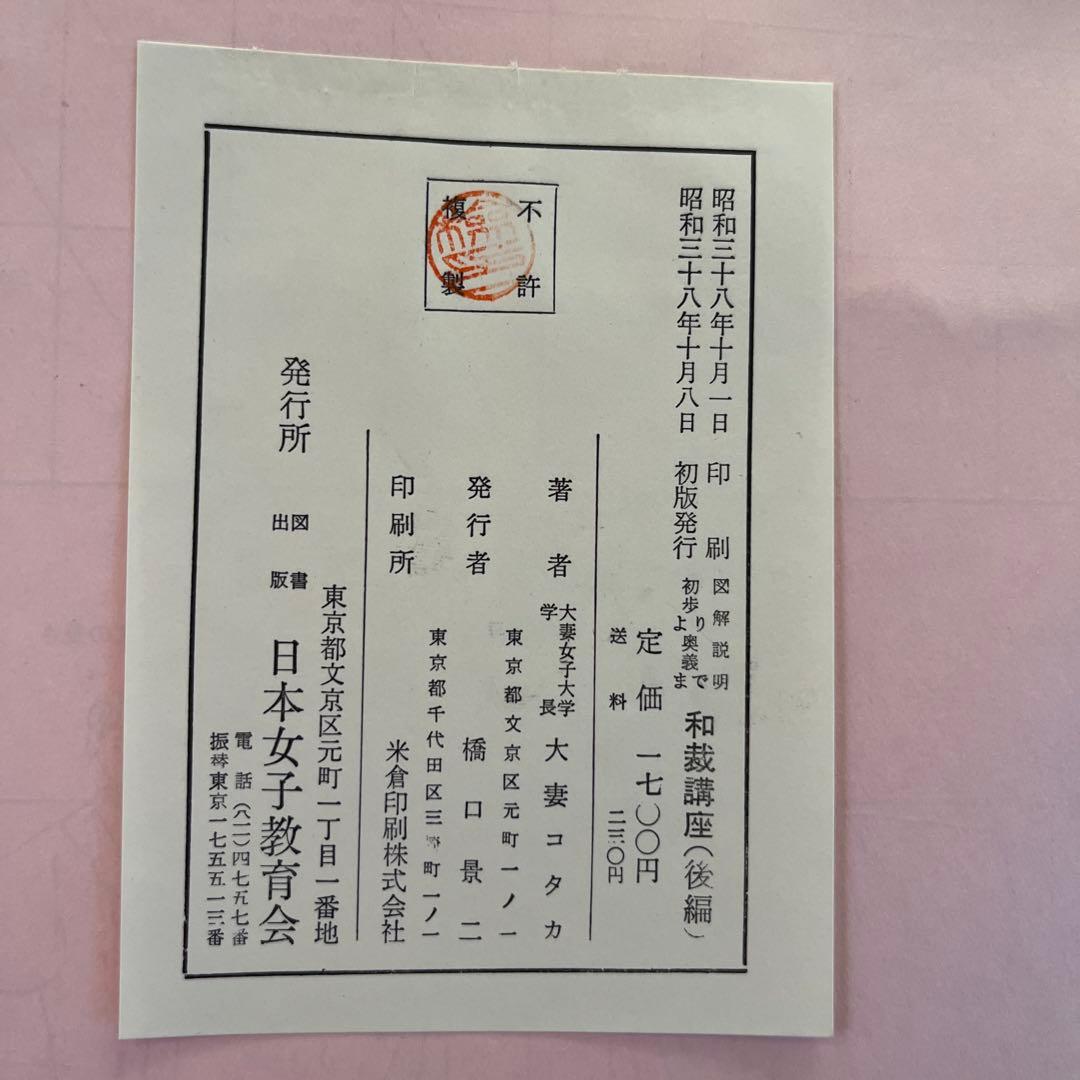 昭和三十八年十月一日 印刷
昭和三十八年十月八日 初版発行
図解説明
初歩より奥義まで
和裁講座(後編)
定価 一七〇〇円
送料 二三〇円
不許
複製
著者
大妻女子大学
学長
大妻コタカ
東京都文京区元町一ノ一
発行者 橋口景二
東京都千代田区三 町一ノ一
印刷所 米倉印刷株式会社
東京都文京区元町一丁目一番地
発行所
図書
出版
日本女子教育会
電話(八一一)四七五七番
振替東京一七五五一三番